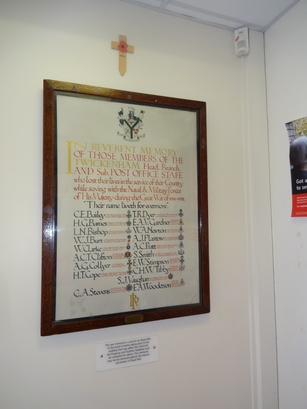 IN REVERENT MEMORY
OF THOSE MEMBERS OF THE
TWICKENHAM, Head, Branch,
AND Sub. POST OFFICE STAFF
who lost their lives in the service of their Country
while serving with the Naval & Military Forces
of His Majesty during the Great War of 1914-1918.
"Their name liveth for evermore."
C.E. Bailey T.R. Dyer
H.G. Barnes E.A.V. Gardner
L.N. Bishop W.A. Norton
W.J. Burt A.J. Plastow
W. Clarke A.C. Pratt
A.C.T. Clifton S. Smith
A.G. Collyer E.W. Stimpson
H.T. Cope C.H.W. Tibby
S.J. Vaughan
C.A. Stevens E.A. Woodeson
Got a
to se